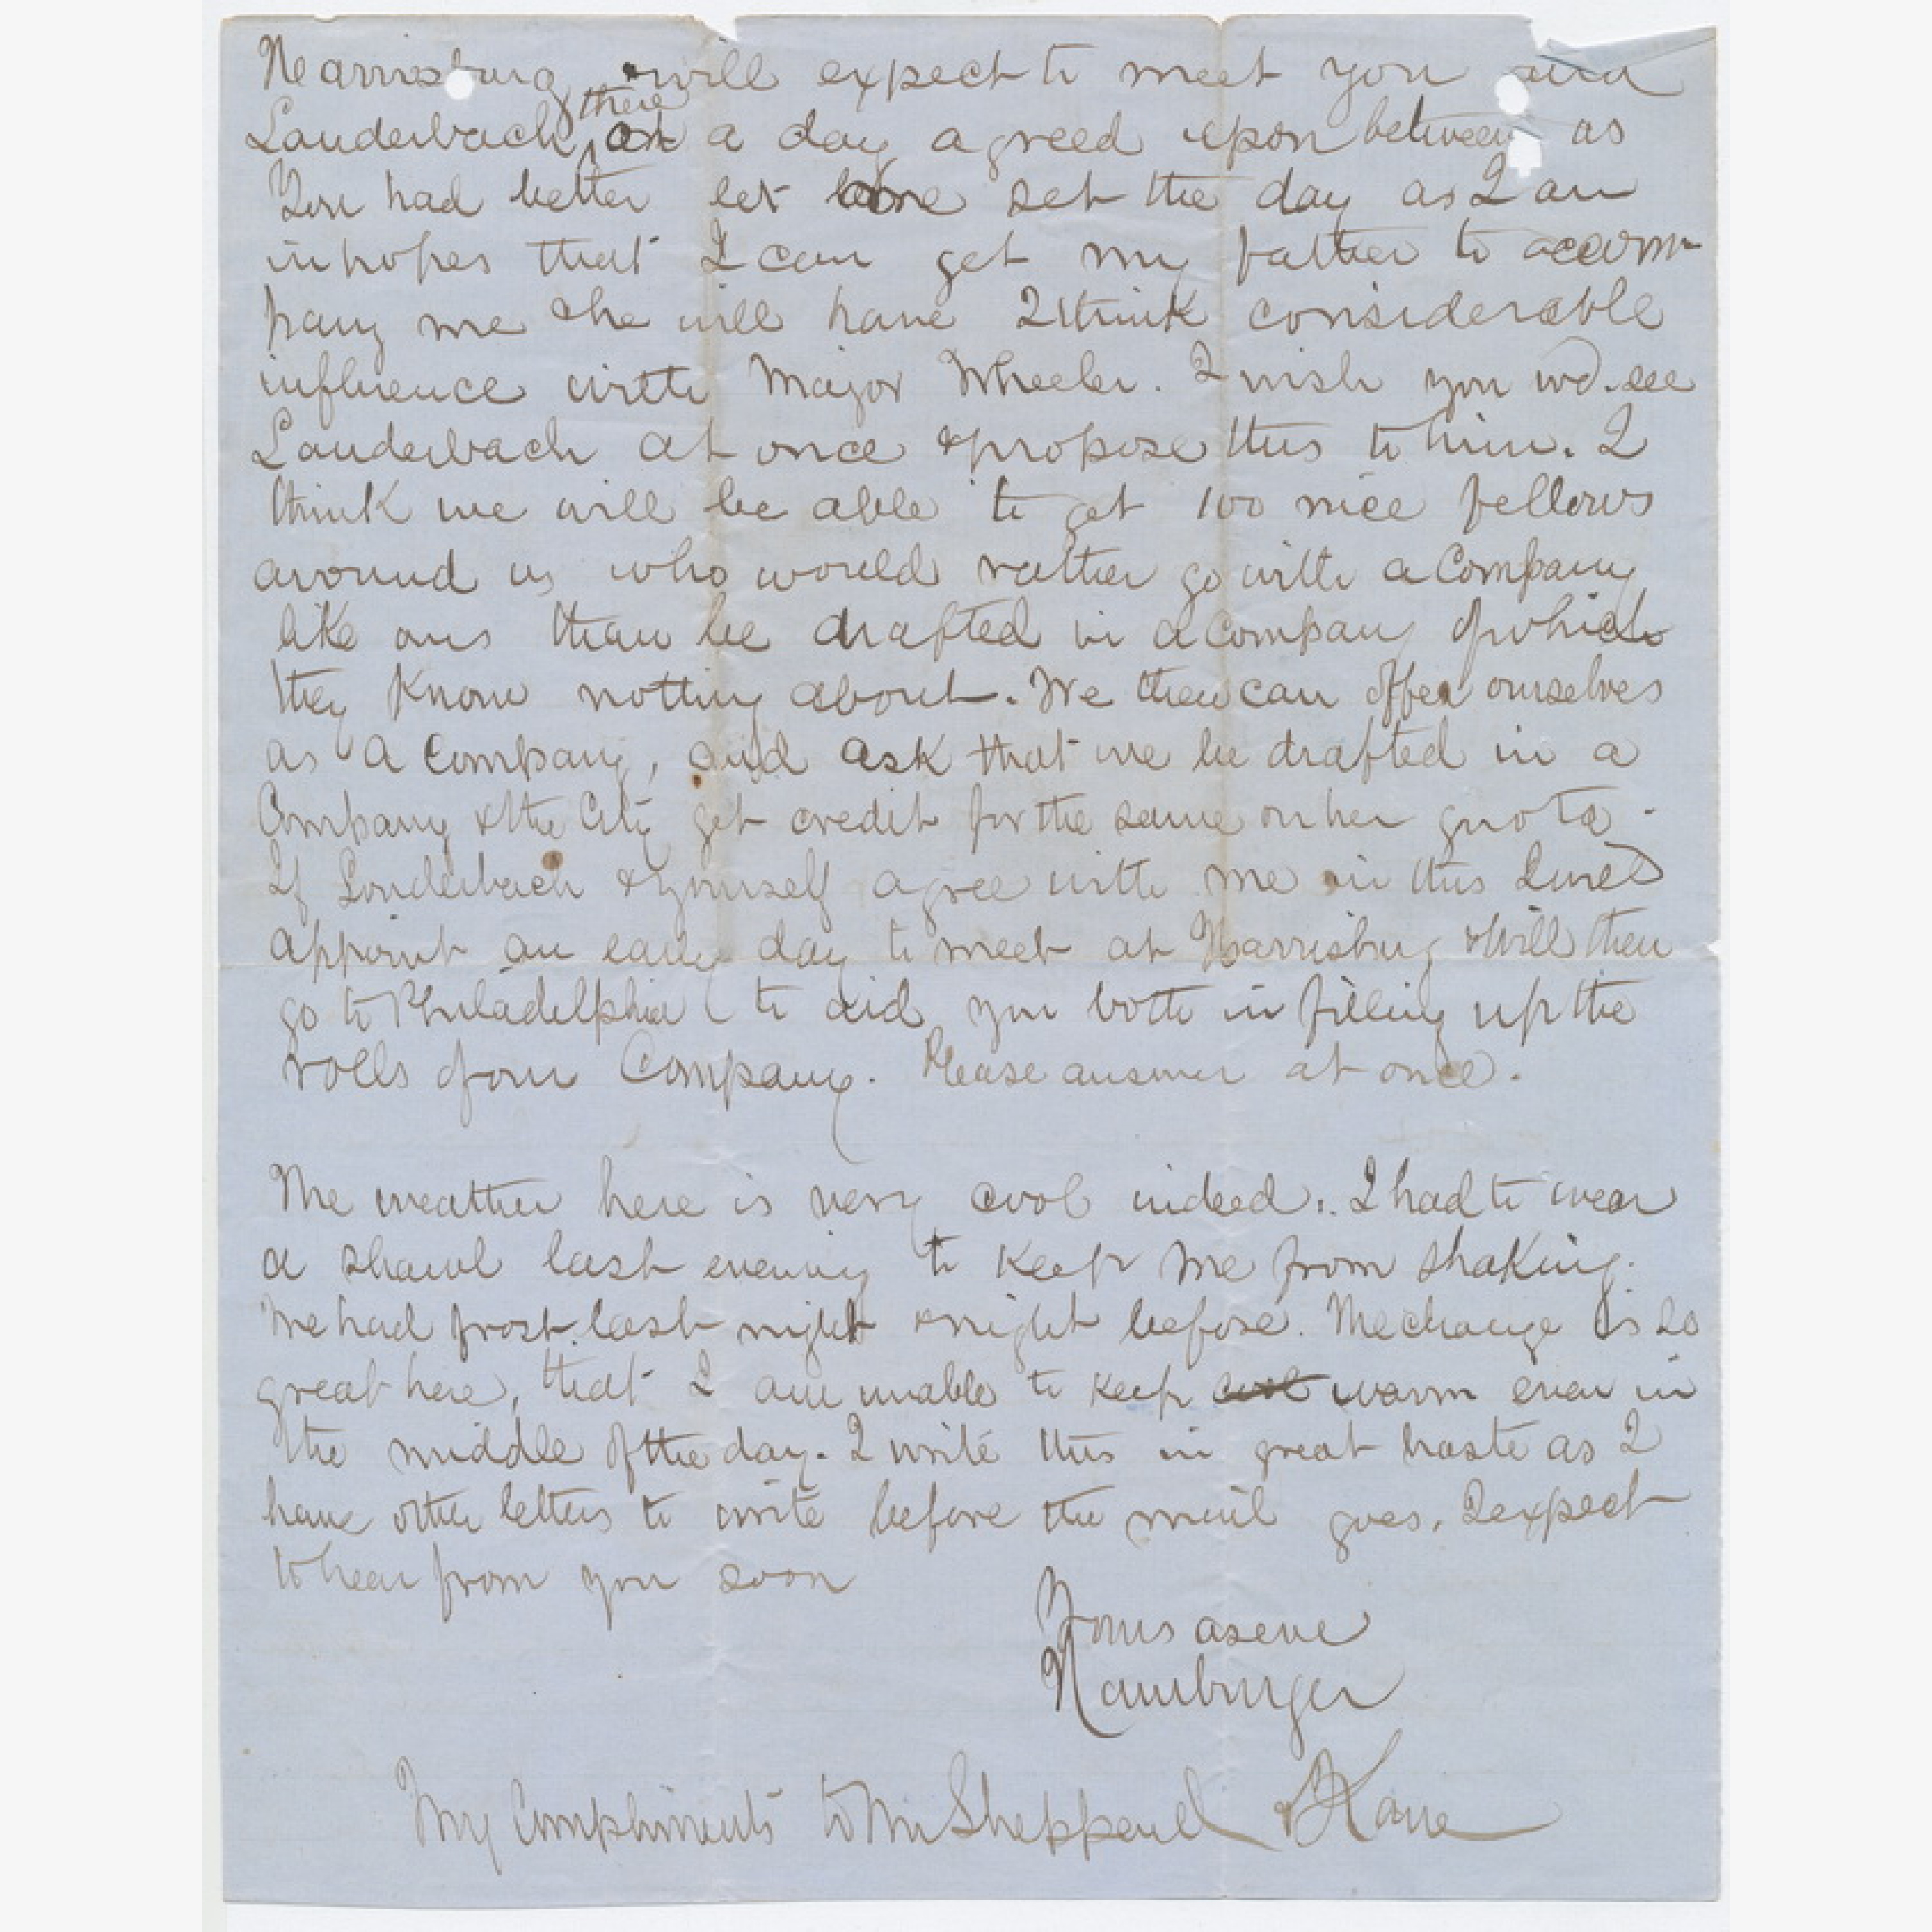 Harrisburg, will expect to meet you and
Lauderbach, there at a day agreed upon between us
You had better let me set the day as I am
in hopes that I can get my father to accom-
pany me & he will have I think considerable
influence with Major Wheeler. I wish you wd. see
Lauderbach at once & propose this to him. I
think we will be able to get 100 nice fellows
around us who would rather go with a Company
like ours than be drafted in a Company of which
they know nothing about. We then can offer ourselves
as a Company, and ask that we be drafted in a
Company & the City get credit for the same on her quota.
If Louderbach & yourself agree with me in this I will
appoint an early day to meet at Harrisburg & will then
go to Philadelphia to aid you both in filling up the
rolls of our Company. Please answer at once.
The weather here is very cool indeed. I had to wear
a shawl last evening to keep me from shaking.
We had frost last night & night before. The change is so
great here, that I am unable to keep cool warm even in
the middle of the day. I write this in great haste as I
have other letters to write before the mail goes. I expect
to hear from you soon
Yours as ever
Hamburger
My Compliments to Mr Sheppard & Kane